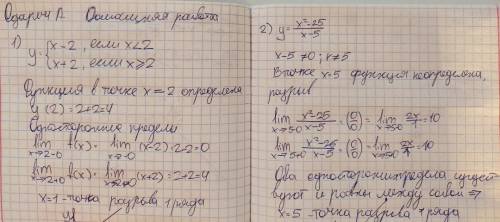 Одарич А. Домашняя работа
1) y = { x-2, если x<2
x+2, если x≥2
Функция в точке x=2 определена
y(2)=2+2=4
Односторонние пределы
lim x→2-0 f(x) = lim x→2-0 (x-2)=2-2=0
lim x→2+0 f(x) = lim x→2+0 (x+2)=2+2=4
x=1 - точка разрыва 1 рода
y↑
2) y = x²-25 / x-5
x-5≠0; x≠5
В точке x=5 функция неопределена,
разрыв
lim x→5-0 x²-25 / x-5 = (0/0) = lim x→5-0 2x/1 = 10
lim x→5+0 x²-25 / x-5 = (0/0) = lim x→5+0 2x/1 = 10
Оба односторонних предела сущест-
вуют и равны между собой ⇒
x=5 - точка разрыва 1 рода